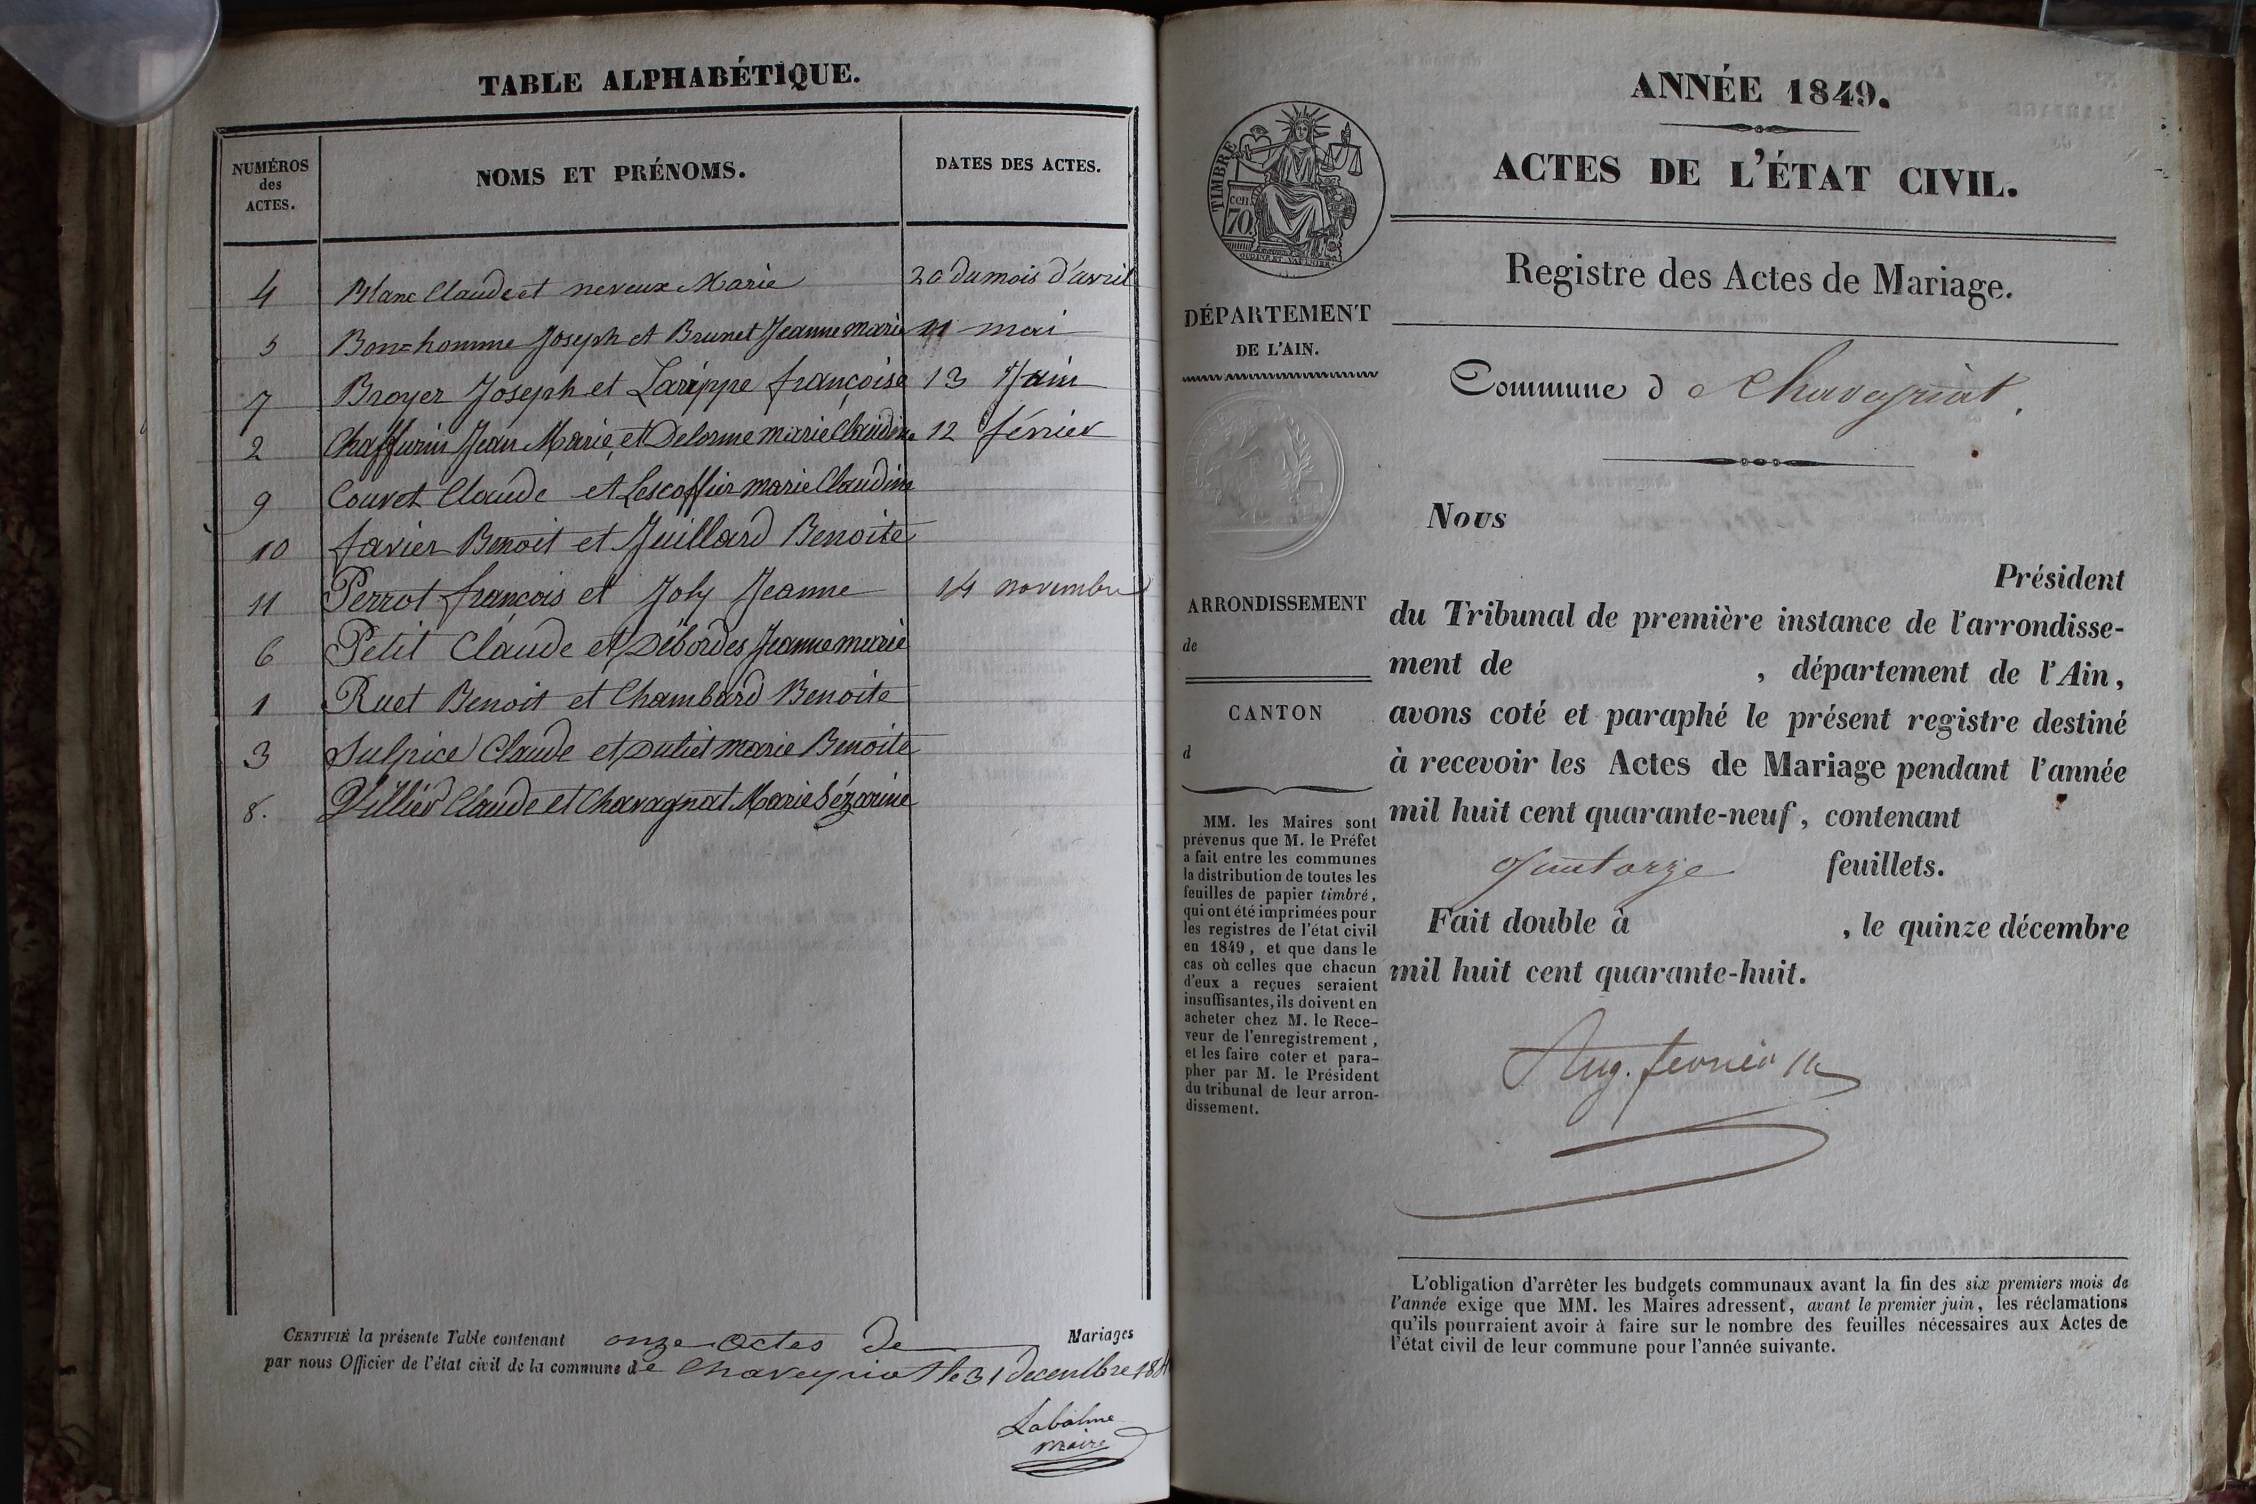 TABLE ALPHABÉTIQUE.
NUMÉROS
des
ACTES.
NOMS ET PRÉNOMS.
DATES DES ACTES.
4 Blanc Claude et neveux Marie 20 du mois d'avril
5 Bon=homme Joseph et Brunet Jeanne marie 11 mai
7 Broyer Joseph et Larippe françoise 13 Juin
2 Chaffurin Jean Marie, et Delorme marie Claudine 12 février
9 Couvet Claude et Lescoffier marie Claudine
10 favier Benoit et Juillard Benoite
11 Perrot françois et Joly Jeanne 14 novembre
6 Petit Claude et Débordes Jeanne marie
1 Ruet Benoit et Chambard Benoite
3 Sulpice Claude et Duliet marie Benoite
8. Villied Claude et Chavagnat Marie Sézarine
CERTIFIÉ la présente Table contenant onze actes de Mariages
par nous Officier de l'état civil de la commune de Chaveyriat le 31 decembre
Labalme
maire
ANNÉE 1849.
ACTES DE L'ÉTAT CIVIL.
Registre des Actes de Mariage.
Commune d Chaveyriat.
TIMBRE
70
cen
DÉPARTEMENT
DE L'AIN.
ARRONDISSEMENT
de
CANTON
d
MM. les Maires sont
prévenus que M. le Préfet
a fait entre les communes
la distribution de toutes les
feuilles de papier timbré,
qui ont été imprimées pour
les registres de l'état civil
en 1849, et que dans le
cas où celles que chacun
d'eux a reçues seraient
insuffisantes, ils doivent en
acheter chez M. le Rece-
veur de l'enregistrement,
et les faire coter et para-
pher par M. le Président
du tribunal de leur arron-
dissement.
Nous
Président
du Tribunal de première instance de l'arrondisse-
ment de , département de l'Ain,
avons coté et paraphé le présent registre destiné
à recevoir les Actes de Mariage pendant l'année
mil huit cent quarante-neuf, contenant
quatorze feuillets.
Fait double à , le quinze décembre
mil huit cent quarante-huit.
Aug.
L'obligation d'arrêter les budgets communaux avant la fin des six premiers mois de
l'année exige que MM. les Maires adressent, avant le premier juin, les réclamations
qu'ils pourraient avoir à faire sur le nombre des feuilles nécessaires aux Actes de
l'état civil de leur commune pour l'année suivante.